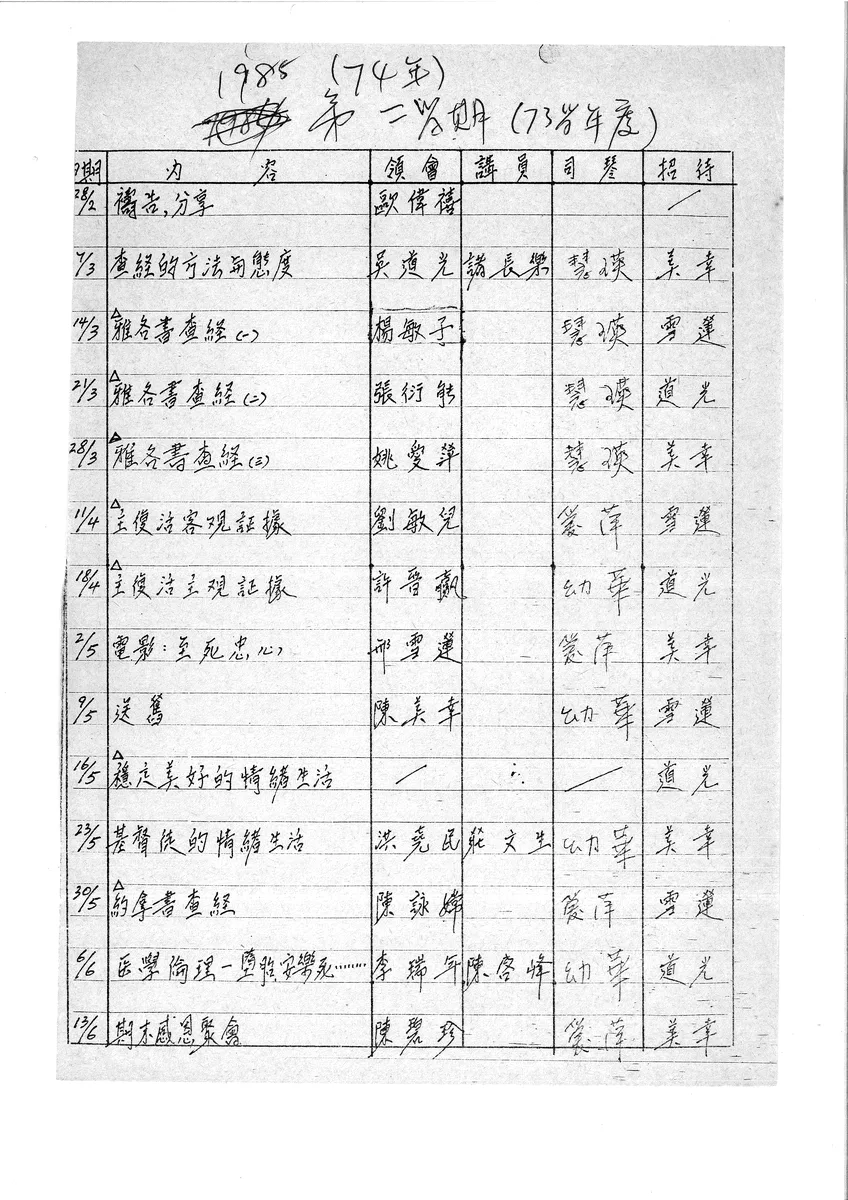 1985 (74年)
第二学期 (73学年度)
日期 內容 領會 講員 司琴 招待
28/2 禱告,分享 歐偉禧 /
7/3 查经的方法与態度 吳道光 諸長樂 慧瑛 美幸
14/3 △雅各書查経(一) 楊敏子 慧瑛 雪蓮
21/3 △雅各書查経(二) 張衍能 慧瑛 道光
28/3 △雅各書查経(三) 姚愛萍 慧瑛 美幸
11/4 △主復活客观証據 劉敏兒 萍 雪蓮
18/4 △主復活主观証據 許晋贏 幼華 道光
2/5 電影:至死忠心 邢雪蓮 萍 美幸
9/5 送舊 陳美幸 幼華 雪蓮
16/5 △穩定美好的情緒生活 / ∴ / 道光
23/5 基督徒的情緒生活 洪堯民 莊文生 幼華 美幸
30/5 △約拿書查経 陳詠嫦 萍 雪蓮
6/6 医學倫理-墮胎,安樂死……… 李瑞年 陳容峰 幼華 道光
13/6 期末感恩聚會 陳碧珍 萍 美幸